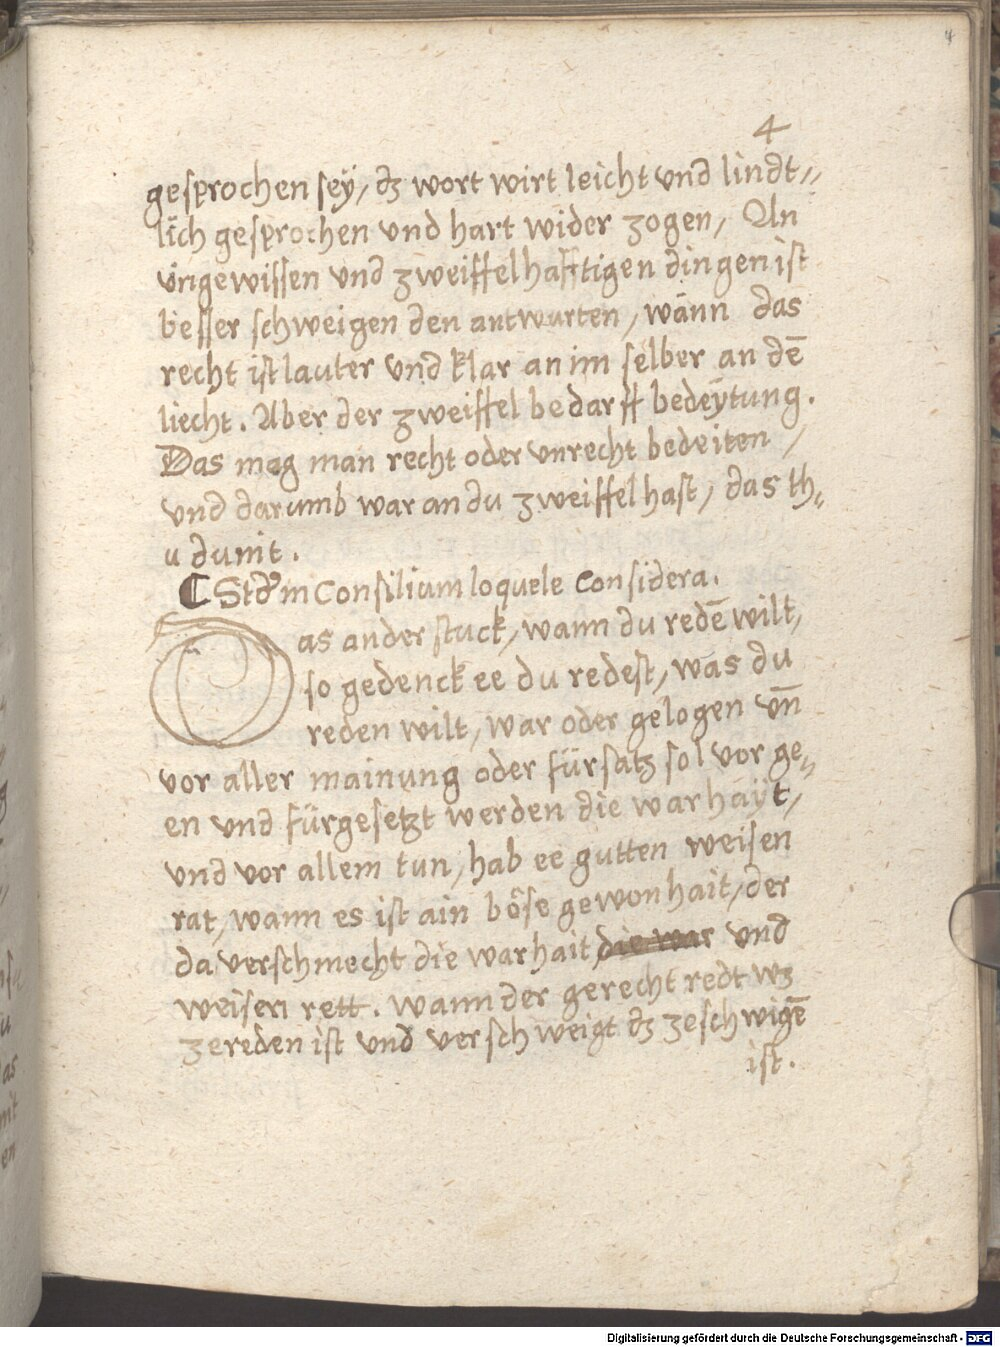 4
4
gesprochen sey, dz wort wirt leicht und lindt„
lich gesprochen und hart wider zogen, An
ungewissen und zweiffelhafftigen dingen ist
besser schweigen den antwurten, wann das
recht ist lauter und klar an im selber an dē
liecht. Aber der zweiffel bedarff bedeÿtung.
Das mag man recht oder unrecht bedeiten,
und darumb war an du zweiffel hast, das th„
u du nit.
¶ Stdm Consilium loquele Considera.
Das ander stuck, wann du redē wilt,
so gedenck ee du redest, was du
reden wilt, war oder gelogen vn̄
vor aller mainung oder fürsatz sol vor ge„
en und fürgesetzt werden die warhaÿt,
und vor allem tun, hab ee gutten weisen
rat, wann es ist ain böse gewonhait, der
da verschmecht die warhait die war und
weisen rett. wann der gerecht redt wz
zereden ist und verschweigt dz zeschwigē
ist.
Digitalisierung gefördert durch die Deutsche Forschungsgemeinschaft - DFG